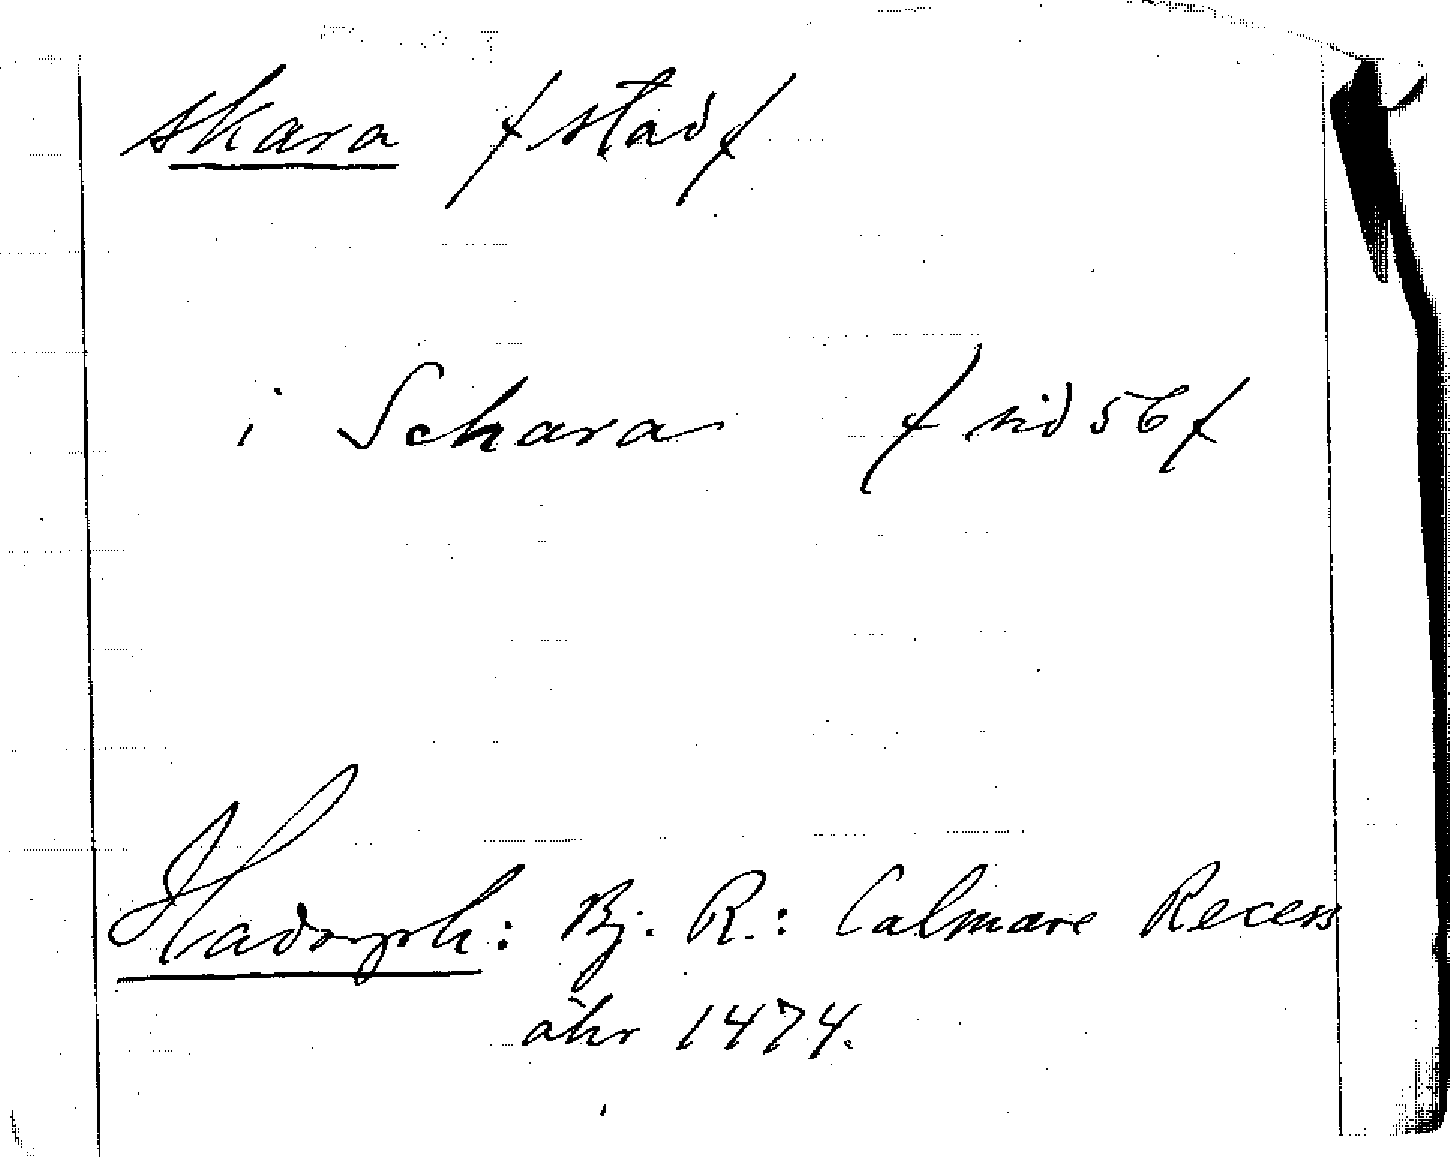 skara /stad/
i Schara /sid 56/
Hadorph: Bj. R.: Calmare Recess
åhr 1474.